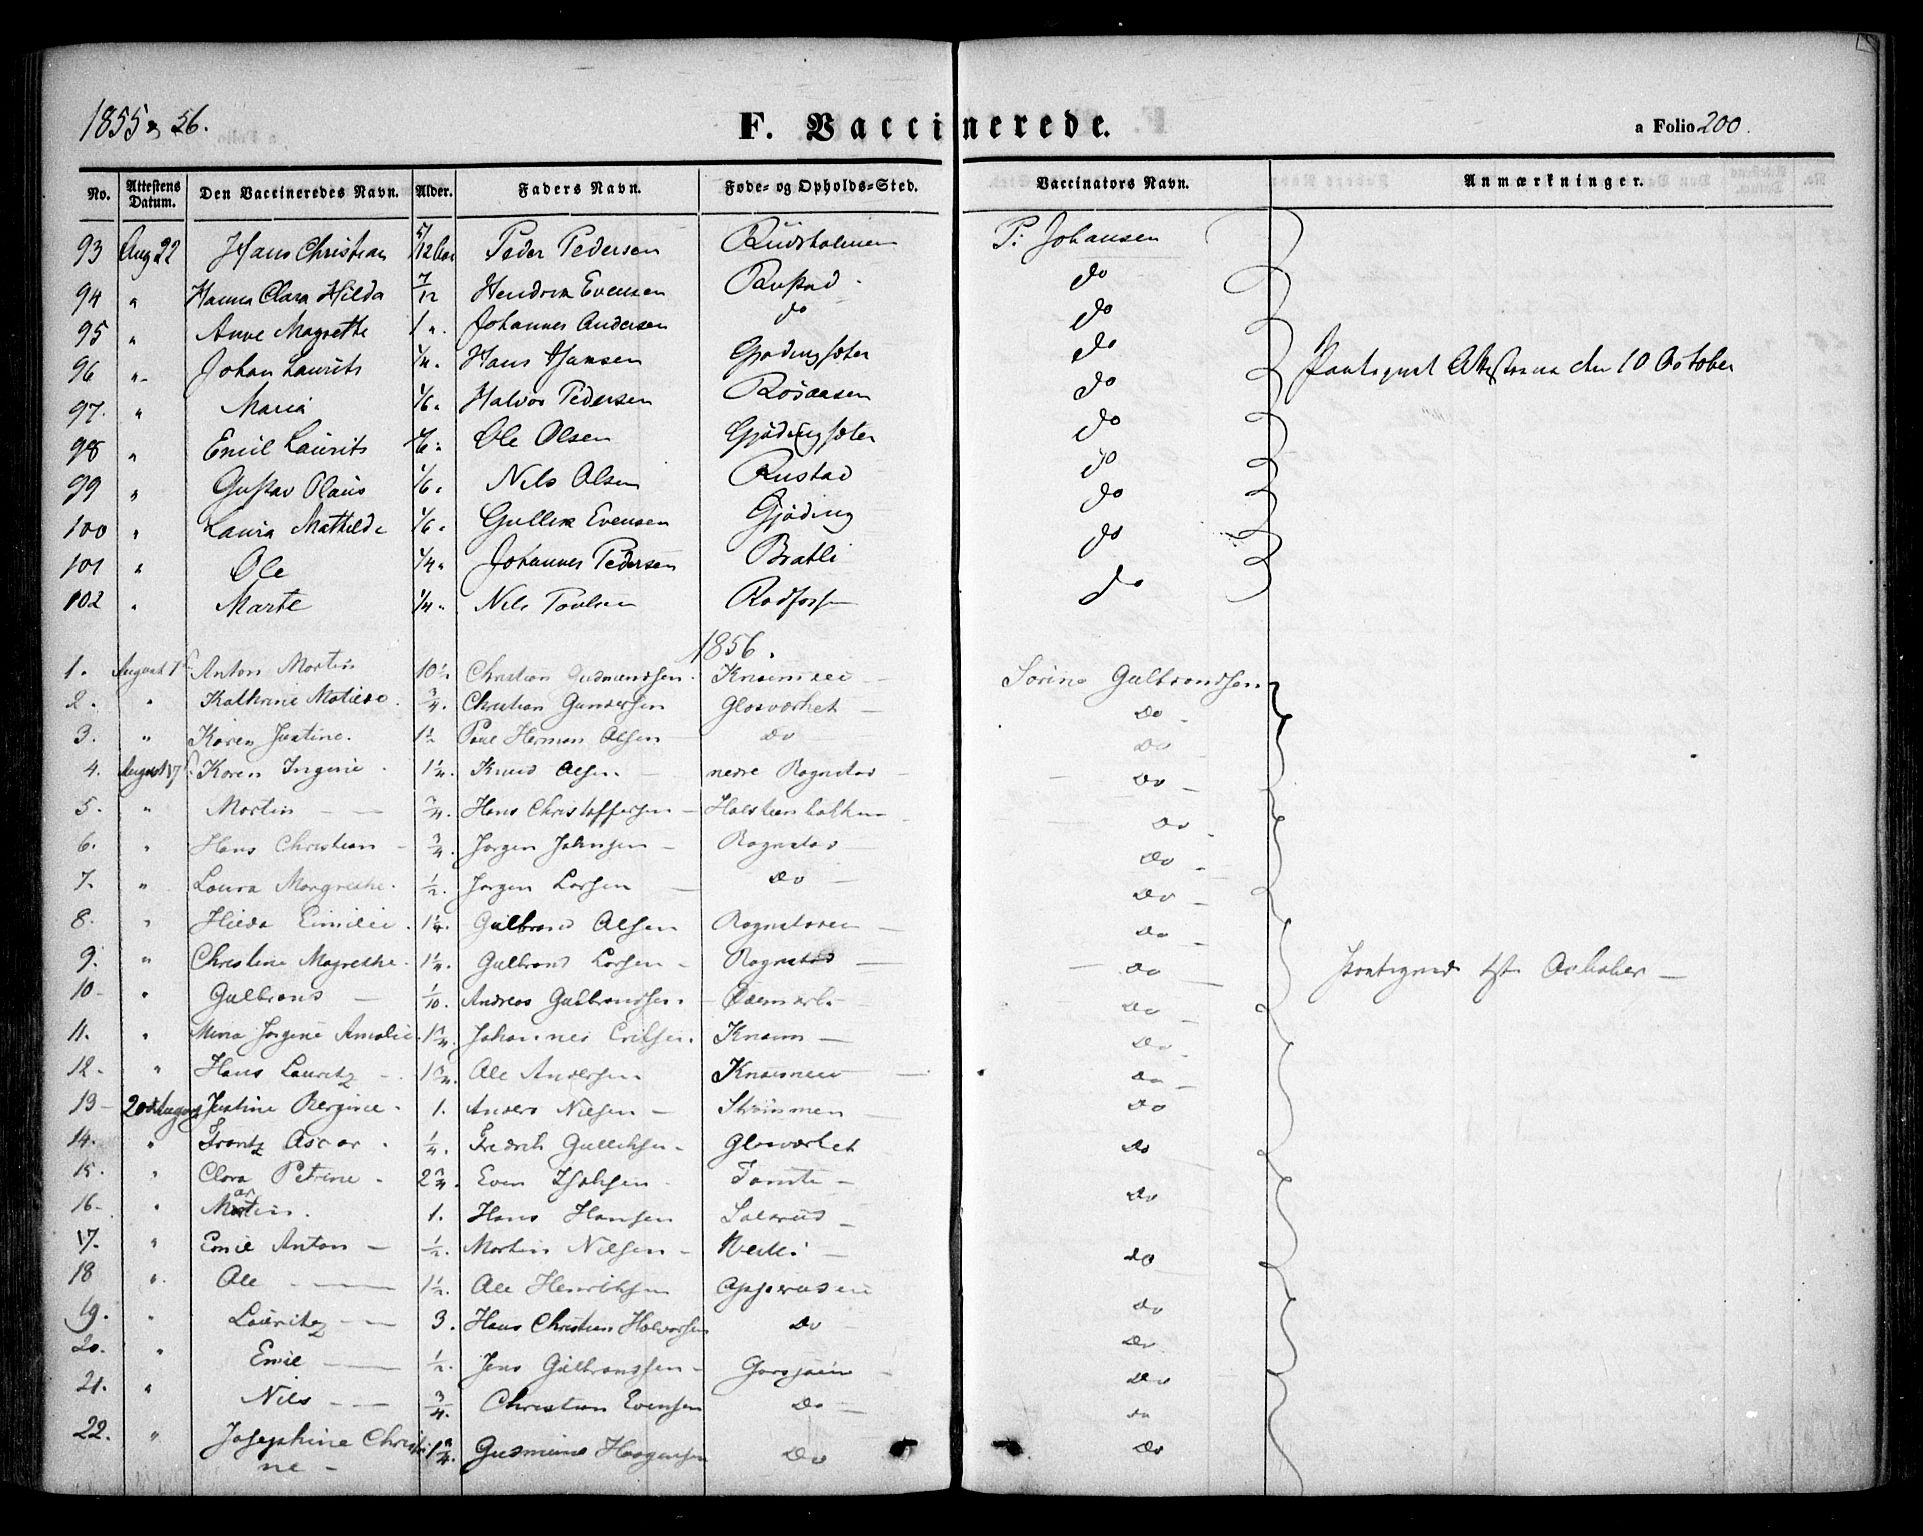 1855 & 56.
F. Vaccinerede.
a Folio 200.
No. Attestens Datum. Den Vaccineredes Navn. Alder. Faders Navn. Føde- og Opholds-Sted. Vaccinators Navn. Anmærkninger.
93 Aug 22 Hans Christian 5/12 Peder Pedersen P. Johansen
94 " Hanna Clara Hilda 7/12 Hendrik Evensen Rustad do
95 " Anne Magrethe 1 " Johannes Andersen do do
96 " Johan Laurits 1/4 " Hans Hansen Gjødingsæter do den 10 October
97. " Maria 1/6 " Halvor Pedersen Rosaasen do
98 " Emil Laurits 1/6 " Ole Olsen Gjødingsæter do
99 " Gustav Olaus 1/6 " Nils Olsen Rustad do
100 " Laura Mathilde 1/6 " Gullik Evensen Gjøding do
101 " Ole 1/4 " Johannes Pedersen Bratli do
102 " Marte 1/4 " Nils Paulsen Rodfossen do
1856.
1. August 1 Anton Martin 10 1/2 Christian Gudmundsen. Sørine Gulbrandsen
2. " Kathrine Matiese. 3/4. Christian Gundersen Glasværket Do
3. " Karen Justine. 1 1/2 Paul Herman Olsen Do Do
4. August 17 Karen Ingine 1 1/4. Knud Olsen nedre Rognstad Do
5. " Martin 3/4. Hans Christoffersen Do
6. " Hans Christian 3/4. Jørgen Johnsen Rognstad Do
7. " Laura Margrethe. 1/2. Jørgen Larsen Do Do
8. " Hilda Emilie. 1 1/4. Gulbrand Olsen Do
9. " Christine Magrethe. 1 1/4. Gulbrand Larsen Rognstad Do October
10 " Gulbrand 1/10. Andreas Gulbrandsen. Do
11. " Mina Jørgine Amalie. 1 3/4. Johannes Eriksen. Knaim Do
12. " Hans Lauritz 1 3/4. Ole Andersen Do
13 20de August Justine Bergine. 1. Anders Nilsen Strømmen Do
14. " Frantz Oscar 1/4. Fredrik Gulliksen Glasværket Do
15. " Clara Petrine 2 3/4. Even Isaksen Tomte Do
16. " Martin. 1. Hans Hansen Do
17. " Emil Anton 1/2. Martin Nilsen Do
18 " Ole 1 1/2. Ole Henriksen Do
19. " Lauritz 3. Hans Christian Halvorsen Do Do
20. " Emil 1/2. Jens Gulbrandsen Do
21. " Nils 3/4. Christian Evensen Do Do
22. " Josephine Christine 1 3/4. Gudmund Haagensen Do Do